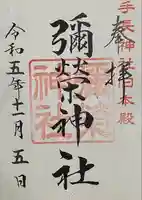 手長神社旧本殿
奉拝
彌榮神社
令和五年十一月五日